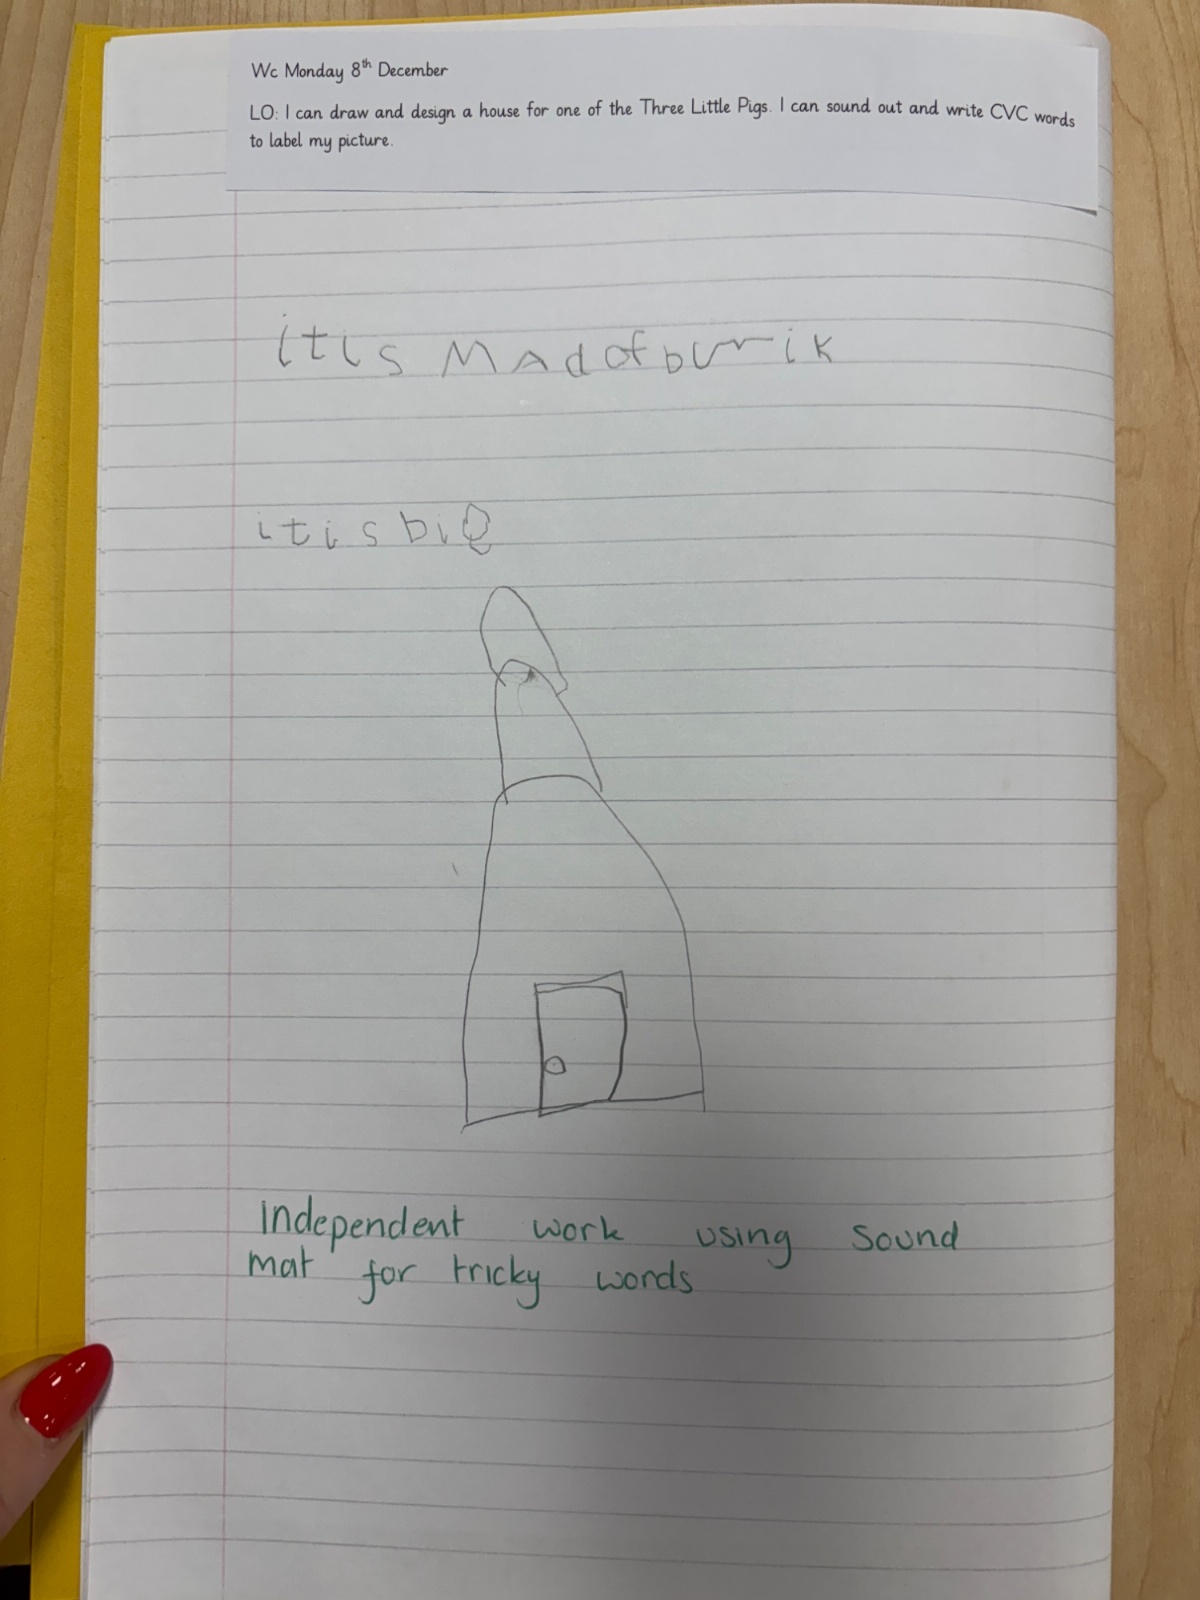 Wc Monday 8th December
LO: I can draw and design a house for one of the Three Little Pigs. I can sound out and write CVC words
to label my picture.
it is Mad of burrik
it is big
Independent work using sound
mat for tricky words